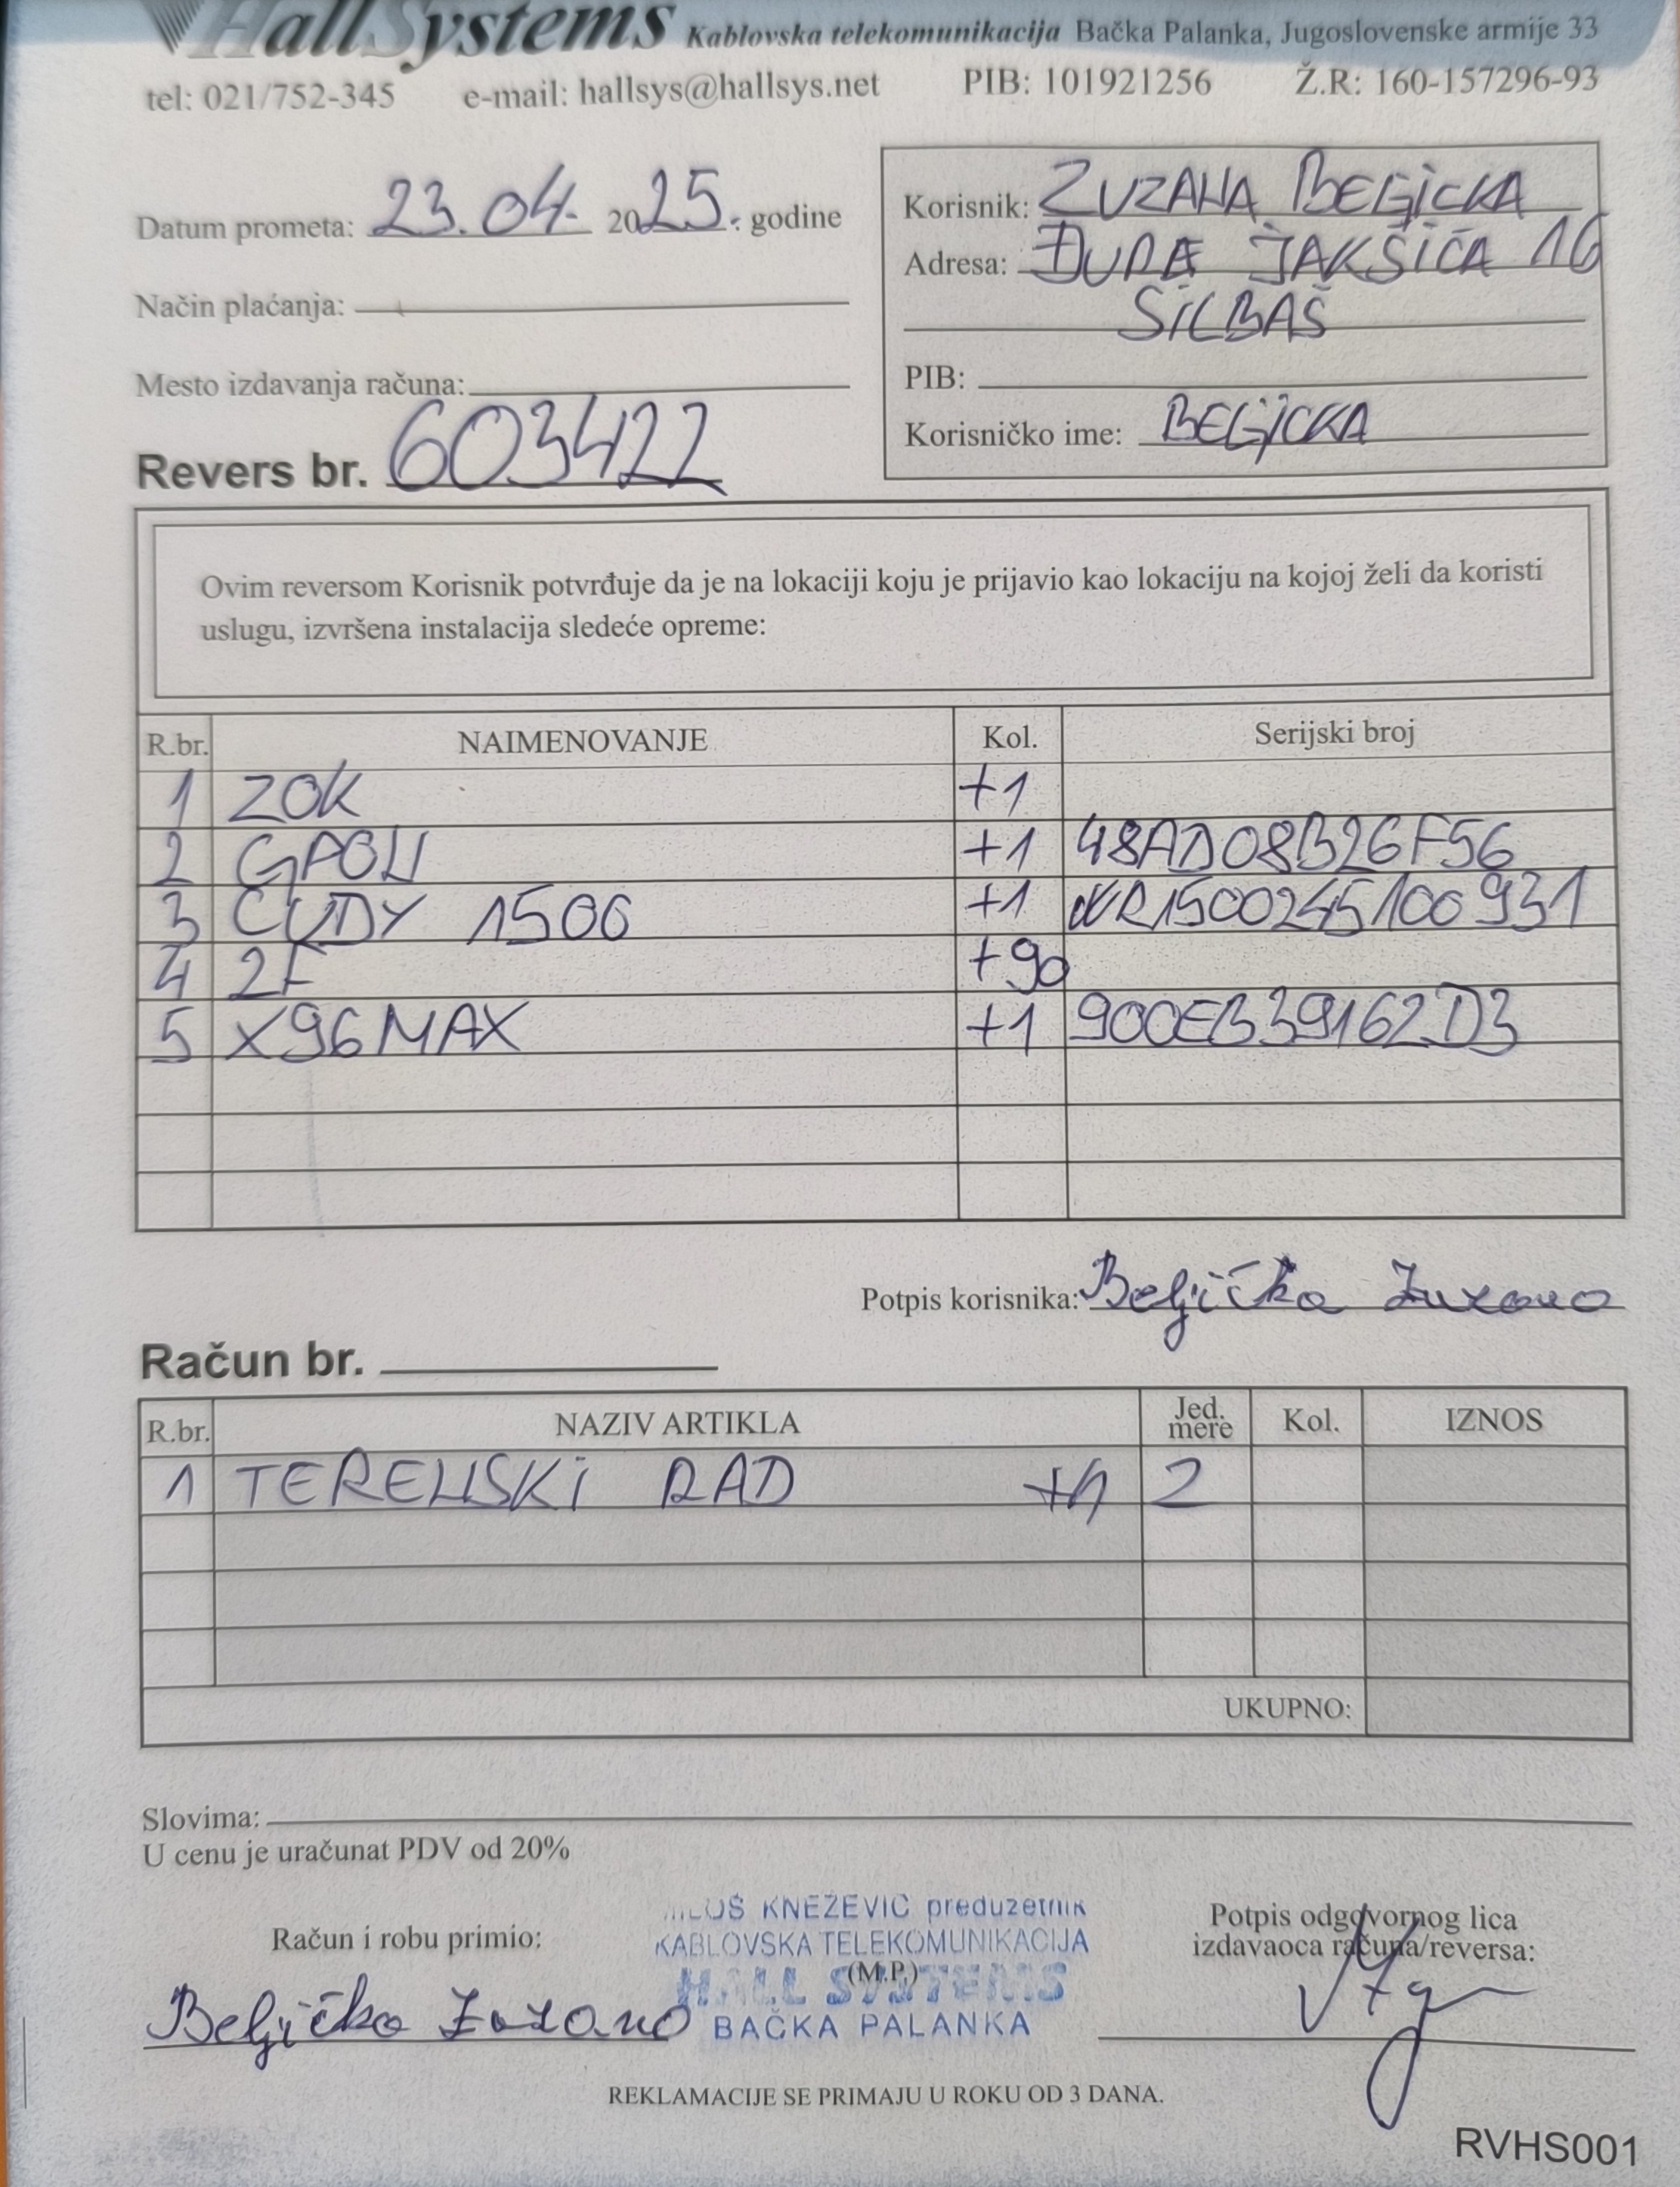 HallSystems Kablovska telekomunikacija Bačka Palanka, Jugoslovenske armije 33
tel: 021/752-345 e-mail: hallsys@hallsys.net PIB: 101921256 Ž.R: 160-157296-93
Datum prometa: 23.04. 2025. godine
Način plaćanja:
Mesto izdavanja računa:
Revers br. 603422
Korisnik: ZUZANA BEGIČKA
Adresa: ĐURE JAKŠIĆA 16
SILBAŠ
PIB:
Korisničko ime: BELJICKA
Ovim reversom Korisnik potvrđuje da je na lokaciji koju je prijavio kao lokaciju na kojoj želi da koristi
uslugu, izvršena instalacija sledeće opreme:
R.br. NAIMENOVANJE Kol. Serijski broj
1 ZOK +1
2 GPON +1 48AD08B26F56
3 CUDY 1500 +1 WR1500245100931
4 2F +90
5 X96MAX +1 900EB39162D3
Potpis korisnika: Beljička Zuzana
Račun br.
R.br. NAZIV ARTIKLA Jed. mere Kol. IZNOS
1 TERENSKI RAD +1 2
UKUPNO:
Slovima:
U cenu je uračunat PDV od 20%
Račun i robu primio:
Beljička Zuzana
KNEŽEVIĆ preduzetnik
KABLOVSKA TELEKOMUNIKACIJA
(M.P.)
HALL SYSTEMS
BAČKA PALANKA
Potpis odgovornog lica
izdavaoca računa/reversa:
REKLAMACIJE SE PRIMAJU U ROKU OD 3 DANA.
RVHS001